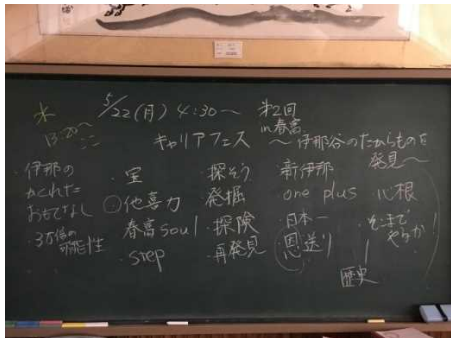 5/22(月) 4:30～ 第2回
in 春高
木
13:20～
キャリアフェス ～伊那谷のたからものを
発見～
・伊那の
かくれた
おもてなし
・3万倍の
可能性
・宝
・他喜力
春高soul
・step
・探そう
発掘
・探険
・再発見
新伊那
one plus
・日本一
恩送り
心根
・そこまで
やるか!
歴史